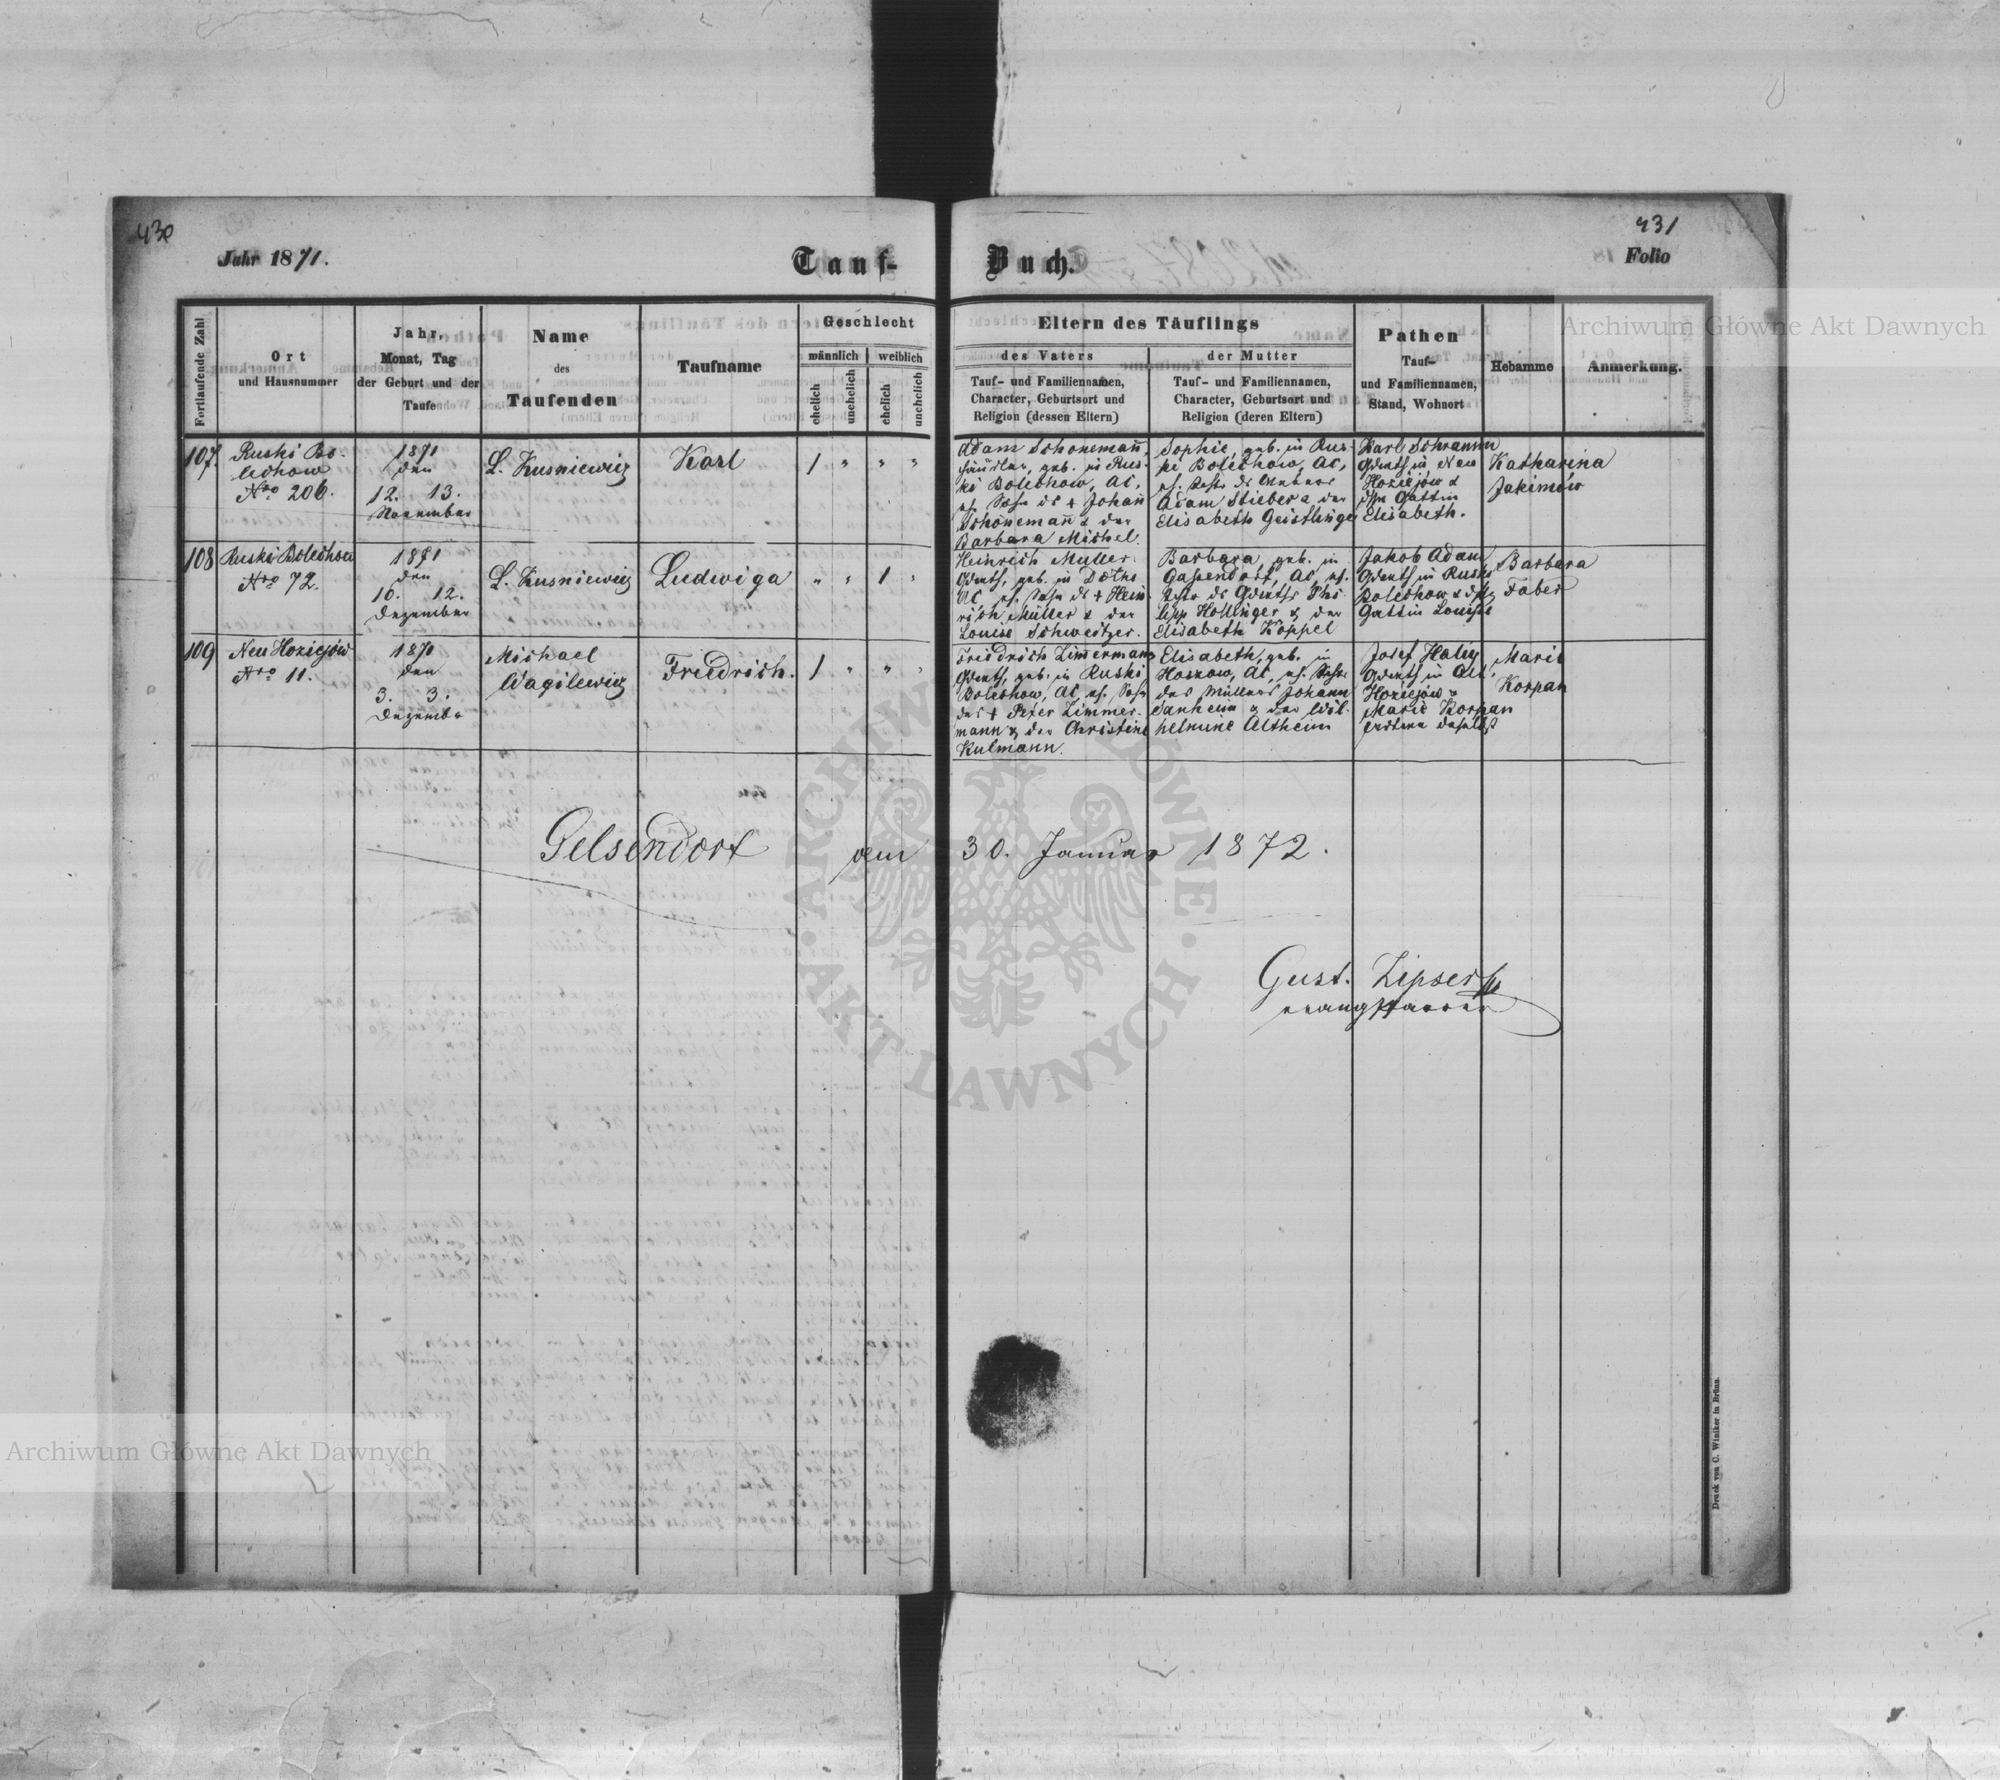 430
431
Jahr 1871.
Tauf-
Buch.
Folio
Fortlaufende Zahl
Ort
und Hausnummer
Jahr,
Monat, Tag
der Geburt und der
Taufe
Name
des
Taufenden
Taufname
Geschlecht
männlich
weiblich
ehelich
unehelich
ehelich
unehelich
Eltern des Täuflings
des Vaters
Tauf- und Familiennamen,
Character, Geburtsort und
Religion (dessen Eltern)
der Mutter
Tauf- und Familiennamen,
Character, Geburtsort und
Religion (deren Eltern)
Pathen
Tauf-
und Familiennamen,
Stand, Wohnort
Hebamme
Anmerkung.
107.
Ruski Bo-
lechow
Nro 206.
1871
den
12. 13.
November
L. Kusniewicz
Karl
1 " " "
Adam Schönemann,
Händler, geb. in Rus-
ki Bolechow, AC,
eh. Sohn ds + Johann
Schönemann & der
Barbara Michel.
Sophie, geb. in Rus-
ki Bolechow, AC,
eh. Tochter ds
Adam Stieber & der
Elisabeth Geistlinger
Karl Schramm
Grdwth in Neu
Hoziejów &
dssn Gattin
Elisabeth.
Katharina
Jakimow
108
Ruski Bolechow
Nro 72.
1871
den
10. 12.
Dezember
L. Kusniewicz
Ludwiga
" " 1 "
Heinrich Müller
Grdwth, geb. in
AC, eh. Sohn ds + Hein-
rich Müller & der
Louise Schweitzer.
Barbara, geb. in
Gassendorf, AC, eh.
Tochter ds Grdwths Phi-
lipp Hollinger & der
Elisabeth Koppel
Jakob Adam
Grdwth in Ruski
Bolechow & dssn
Gattin Louise
Barbara
Faber
109
Neu Hoziejów
Nro 11.
1871
den
3. 3.
Dezember
Michael
Wagilewicz
Friedrich.
1 " " "
Friedrich Zimmermann
Grdwth, geb. in Ruski
Bolechow, AC, eh. Sohn
des + Peter Zimmer-
mann & der Christine
Kulmann.
Elisabeth, geb. in
Hoszow, AC, eh. Tochter
des Müllers Johann
Manheim & der Wil-
helmine Altheim
Josef Haliy
Grdwth in Alt
Hoziejów &
Marie Korpan
daselbst
Marie
Korpan
Gelsendorf am 30. Januar 1872.
Gust. Zipser
evang Pfarrer
Druck von C. Winiker in Brünn.
Archiwum Główne Akt Dawnych
Archiwum Główne Akt Dawnych
ARCHIWUM GŁÓWNE · AKT DAWNYCH ·